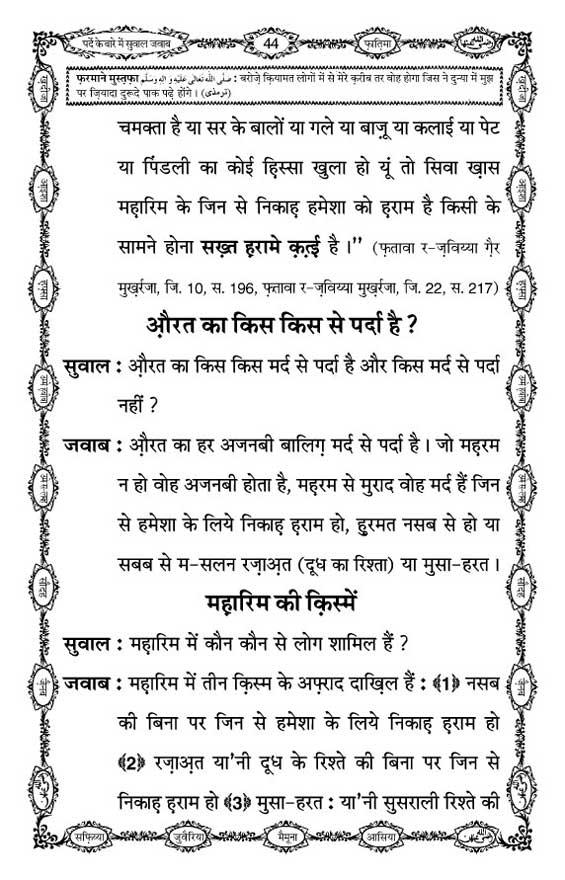 पर्दे के बारे में सुवाल जवाब
44
फ़ातिमा
फ़रमाने मुस्तफ़ा صلى الله تعالى عليه و اله وسلم : बरोज़े क़ियामत लोगों में से मेरे क़रीब तर वोह होगा जिस ने दुन्या में मुझ
पर ज़ियादा दुरूदे पाक पढ़े होंगे । (ترمذى)
चमक्ता है या सर के बालों या गले या बाज़ू या कलाई या पेट
या पिंडली का कोई हिस्सा खुला हो यूं तो सिवा ख़ास
महारिम के जिन से निकाह़ हमेशा को ह़राम है किसी के
सामने होना सख़्त ह़रामे क़त़्ई है ।’’ (फ़तावा र-ज़विय्या ग़ैर
मुख़र्रजा, जि. 10, स. 196, फ़तावा र-ज़विय्या मुख़र्रजा, जि. 22, स. 217)
औ़रत का किस किस से पर्दा है ?
सुवाल : औ़रत का किस किस मर्द से पर्दा है और किस मर्द से पर्दा
नहीं ?
जवाब : औ़रत का हर अजनबी बालिग़ मर्द से पर्दा है । जो मह़रम
न हो वोह अजनबी होता है, मह़रम से मुराद वोह मर्द हैं जिन
से हमेशा के लिये निकाह़ ह़राम हो, हु़रमत नसब से हो या
सबब से म-सलन रज़ाअ़त (दूध का रिश्ता) या मुसा-हरत ।
मह़ारिम की क़िस्में
सुवाल : महारिम में कौन कौन से लोग शामिल हैं ?
जवाब : महारिम में तीन क़िस्म के अफ़्राद दाख़िल हैं : ﴾1﴿ नसब
की बिना पर जिन से हमेशा के लिये निकाह़ ह़राम हो
﴾2﴿ रज़ाअ़त या’नी दूध के रिश्ते की बिना पर जिन से
निकाह़ ह़राम हो ﴾3﴿ मुसा-हरत : या’नी सुसराली रिश्ते की
सफ़िय्या
जुवैरिया
मैमूना
आसिया